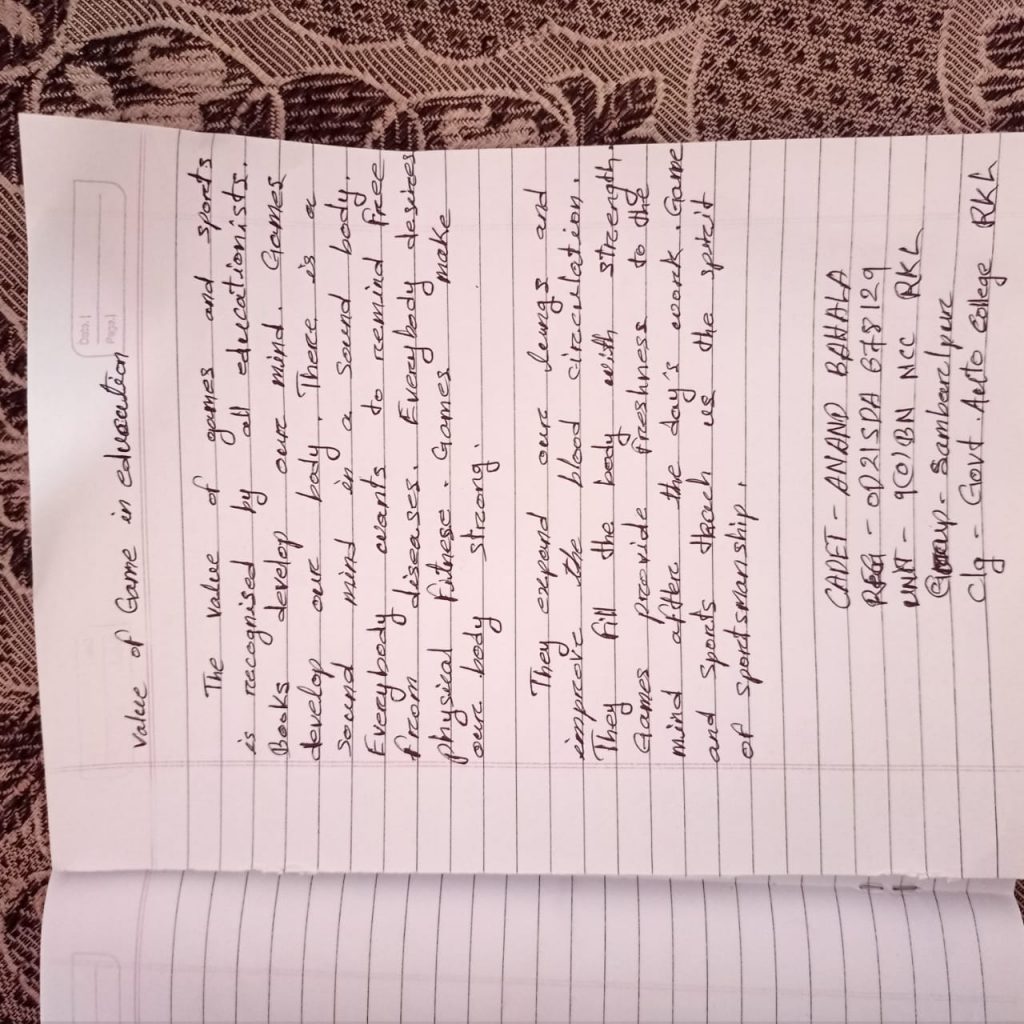 Date.|
Page.|
Value of Game in education
The value of games and sports
is recognised by all educationists.
Books develop our mind. Games
develop our body. There is a
sound mind in a sound body.
Everybody wants to remind free
from diseases. Everybody desires
physical fitness. Games make
our body strong.
They expend our lungs and
improve the blood circulation.
They fill the body with strength.
Games provide freshness to the
mind after the day's work. Game
and sports theach us the spirit
of sportsmanship.
CADET - ANAND BAHALA
REG - OD21SDA 678129
UNIT - 9(O)BN NCC RKL
Group - Sambarlpur
Clg - Govt. Auto College RKL